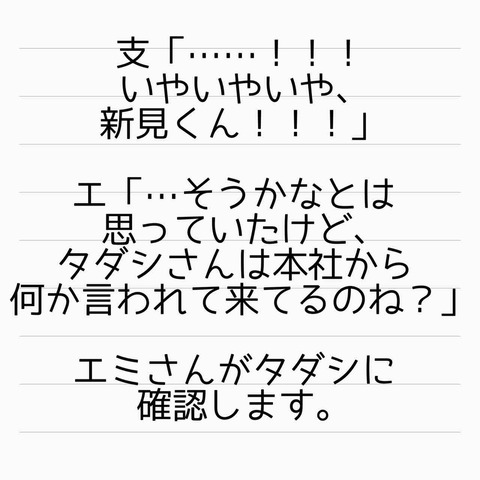 支「……！！！
いやいやいや、
新見くん！！！」
エ「…そうかなとは
思っていたけど、
タダシさんは本社から
何か言われて来てるのね？」
エミさんがタダシに
確認します。